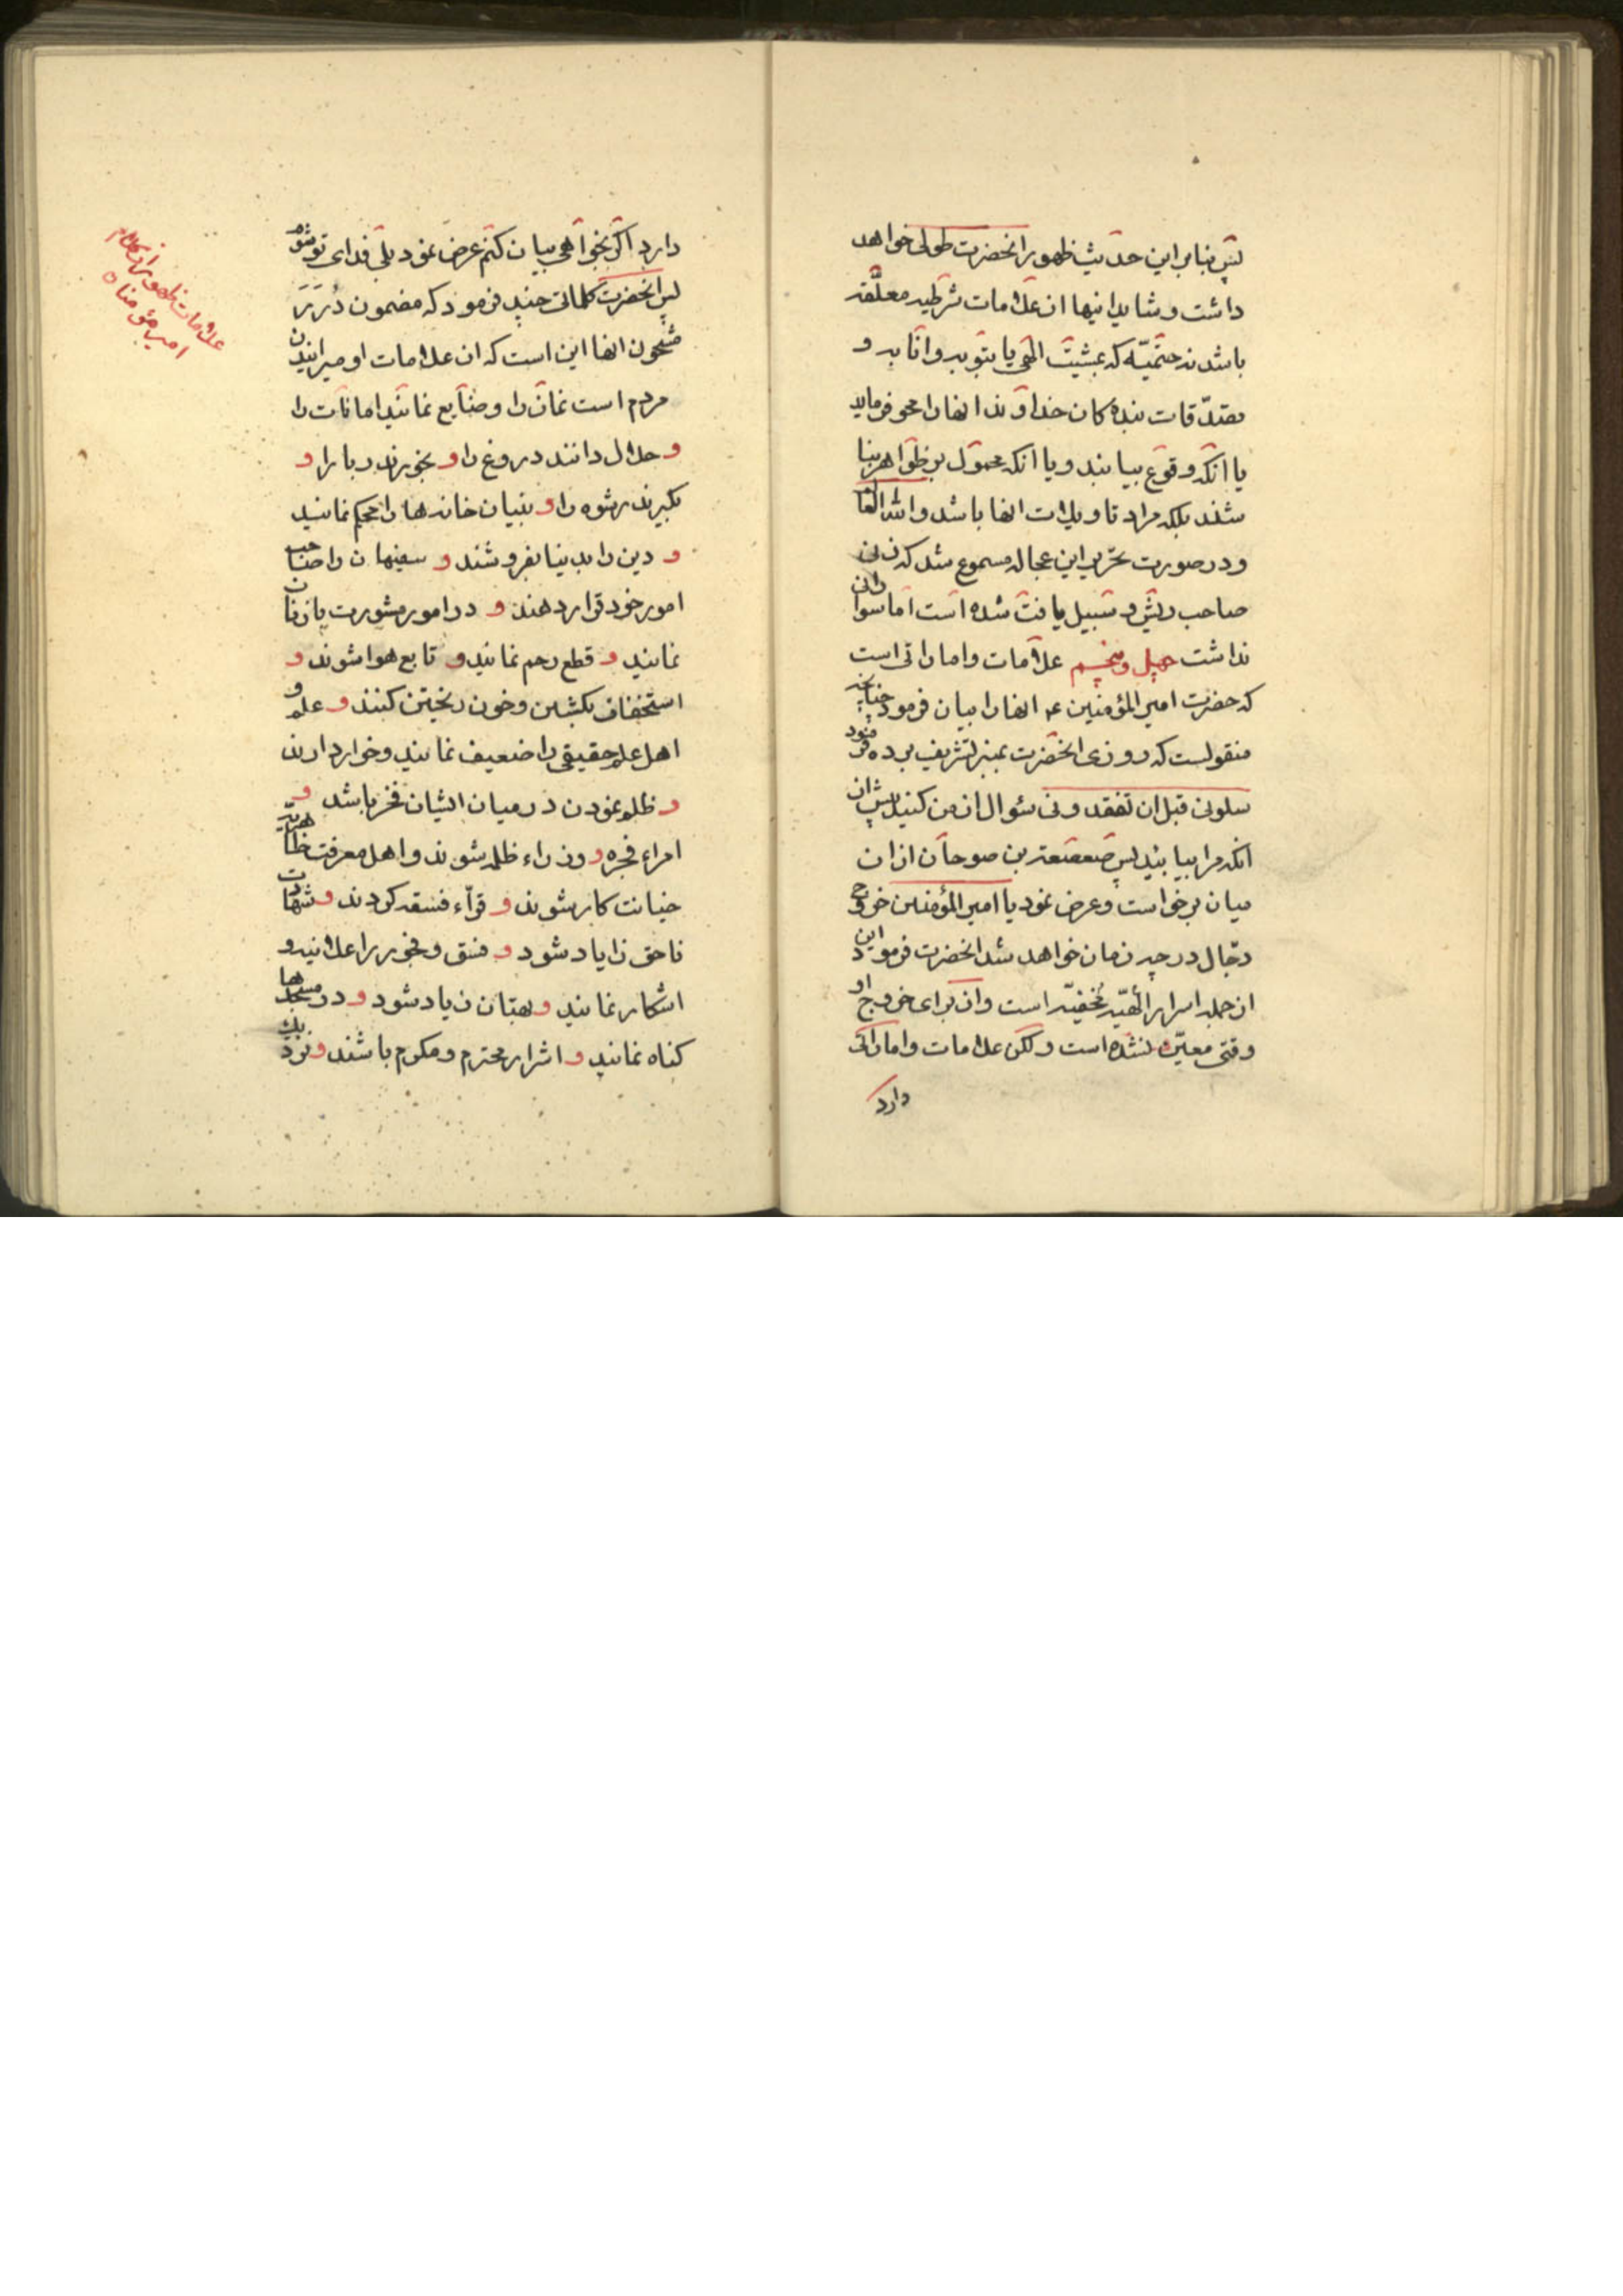 پس بنابر این حدیث ظهور انحضرت طولی خواهد
داشت و شاید اینها از علامات شرطیه معلّقه
باشد نه حتمیّه که بمشیّت الهی یا بتوبه و انابه و
تصدّقات بنده کان خداوند انها را محو فرماید
یا انکه وقوع بیابند و یا انکه محمول بر ظواهر بنا
شند بلکه مراد تاویلات انها باشد والله العا
ودر صورت تحریر این عجاله مسموع شد که زنی
صاحب ریش و سبیل یافت شده است اما سواد انی
نداشت چهل و پنجم علامات و اماراتی است
که حضرت امیر المؤمنین ع انها را بیان فرمود چنانچه
منقولست که روزی انحضرت بمنبر تشریف برده فرمود
سلونی قبل ان تفقدونی سئوال از من کنید پیش از
انکه مرا نیابید پس صعصعة بن صوحان از ان
میان برخواست و عرض نمود یا امیر المؤمنین خروج
دجّال در چه زمان خواهد شد انحضرت فرمود این
از جمله اسرار الهیّه مخفیّه است و از برای خروج او
وقتی معیّن نشده است و لکن علامات و اماراتی
دارد
دارد اکر بخواهی بیان کنم عرض نمود بلی فدای تو شوم
پس انحضرت کلماتی چند فرمود که مضمون دُرَر
مشحون انها این است که از علامات او میرانیدن
مردم است نماز را و ضایع نمایند امانات را
و حلال دانند دروغ را و بخورند ربا را و
بکیرند رشوه را و بنیان خانه ها را محکم نمایند
و دین را بدنیا بفروشند و سفیهان را صاحب
امور خود قرار دهند و در امور مشورت با زنان
نمایند و قطع رحم نمایند و تابع هوا شوند و
استخفاف بکشتن و خون ریختن کنند و علم و
اهل علم حقیقی را ضعیف نمایند و خوار دارند
و ظلم نمودن در میان ایشان فخر باشد و
امراء فجره و وزراء ظلمه شوند و اهل معرفت ظاهریّه
خیانت کار شوند و قرّاء فسقه کردند و شهادت
ناحق زیاد شود و فسق و فجور را علانیه و
اشکار نمایند و بهتان زیاد شود و در مسجدها
کناه نمایند و اشرار محترم و مکرم باشند و نزدیک
علامات ظهور از کلام
امیر مؤمنان